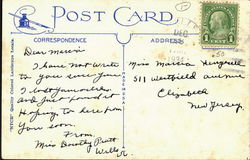 POST CARD
CORRESPONDENCE
ADDRESS
DEC
1
Dear Marcia
I have not write
to you since June
I lost your address
and just found it
Hoping to hear from
You soon.
From
Miss Dorothy Pratt
Miss Marcia
511 Westfield avenue
Elizabeth
New Jersey.